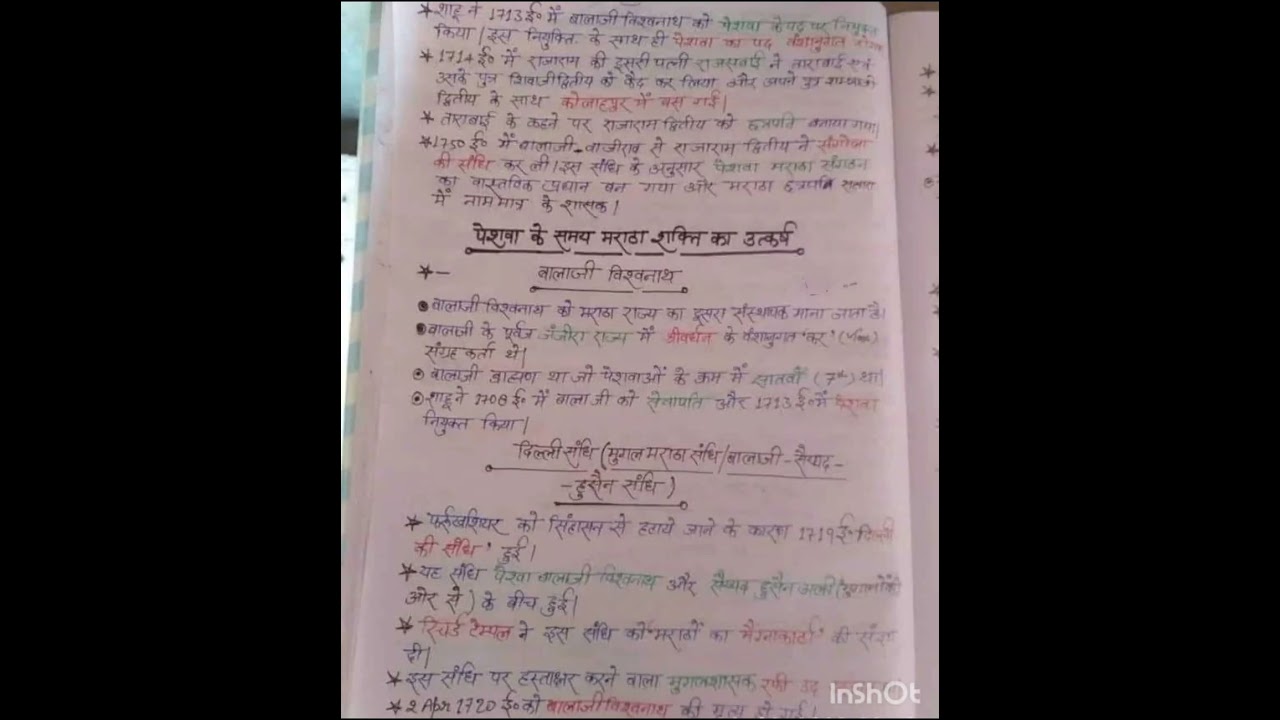 * शाहू ने 1713 ई० में बालाजी विश्वनाथ को पेशवा के पद पर नियुक्त
किया। इस नियुक्ति के साथ ही पेशवा का पद वंशानुगत
* 1714 ई० में राजाराम की दूसरी पत्नी राजसबाई ने ताराबाई एवं
उसके पुत्र शिवाजी द्वितीय को कैद कर लिया और अपने पुत्र शम्भाजी
द्वितीय के साथ कोल्हापुर में बस गई।
* ताराबाई के कहने पर राजाराम द्वितीय को छत्रपति बनाया गया।
* 1750 ई० में बालाजी बाजीराव से राजाराम द्वितीय ने संगोला
की संधि कर ली। इस संधि के अनुसार पेशवा मराठा संगठन
का वास्तविक प्रधान बन गया और मराठा छत्रपति सतारा
में नाममात्र के शासक।
पेशवा के समय मराठा शक्ति का उत्कर्ष
* – बालाजी विश्वनाथ
बालाजी विश्वनाथ को मराठा राज्य का दूसरा संस्थापक माना जाता है।
बालाजी के पूर्वज जंजीरा राज्य में श्रीवर्धन के वंशानुगत 'कर'
संग्रहकर्ता थे।
बालाजी ब्राह्मण था जो पेशवाओं के क्रम में सातवाँ (7th) था।
शाहू ने 1708 ई० में बालाजी को सेनापति और 1713 ई० में पेशवा
नियुक्त किया।
दिल्ली संधि (मुगल मराठा संधि/बालाजी - सैय्यद -
- हुसैन संधि)
* फर्रुखशियर को सिंहासन से हटाये जाने के कारण 1719 ई० दिल्ली
की संधि' हुई।
* यह संधि पेशवा बालाजी विश्वनाथ और सैय्यद हुसैन अली (मुगलों की
ओर से) के बीच हुई।
* रिचर्ड टेम्पल ने इस संधि को 'मराठों का मैग्नाकार्टा' की संज्ञा
दी।
* इस संधि पर हस्ताक्षर करने वाला मुगल शासक रफी उद
* 2 Apr 1720 ई० को बालाजी विश्वनाथ की मृत्यु हो गई।
InShOt